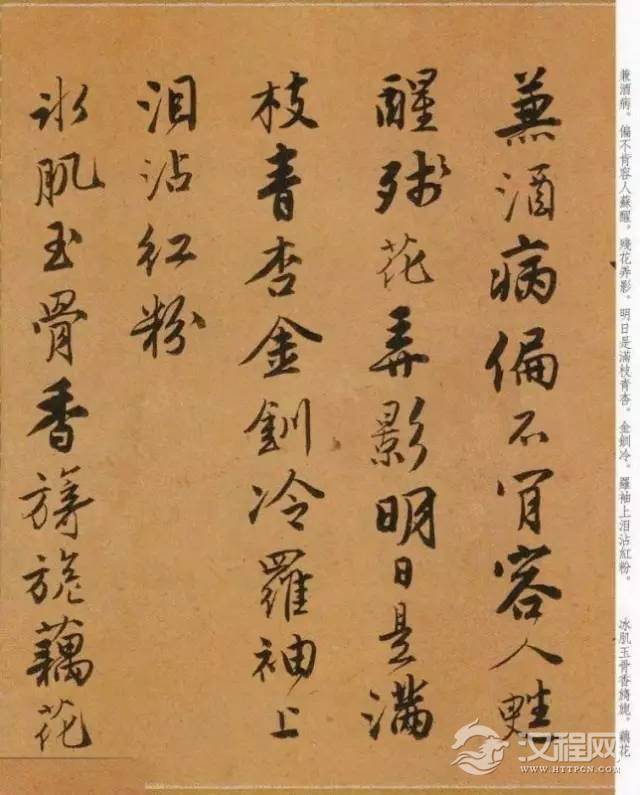 兼酒病。偏不肯容人蘇醒。殘花弄影。明日是滿枝青杏。金釧冷。羅袖上泪沾紅粉。 冰肌玉骨香旖旎。藕花
兼酒病偏不肯容人甦
醒殘花弄影明日是滿
枝青杏金釧冷羅袖上
泪沾紅粉
冰肌玉骨香旖旎藕花
汉程网
WWW.HTTPCN.COM